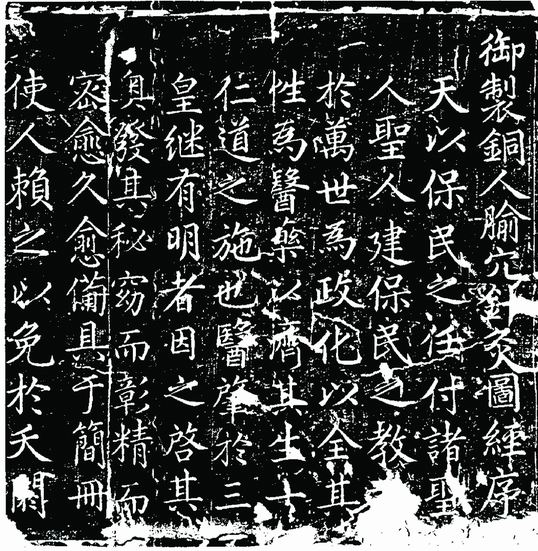 御製銅人腧穴針灸圖經序
天以保民之任付諸聖
人聖人建保民之教
於萬世爲政化以全其
性爲醫藥以濟其生
仁道之施也醫肇於三
皇继有明者因之啓其
奥發其秘窈而彰精而
宻愈久愈俻具于簡冊
使人頼之以免於夭閼